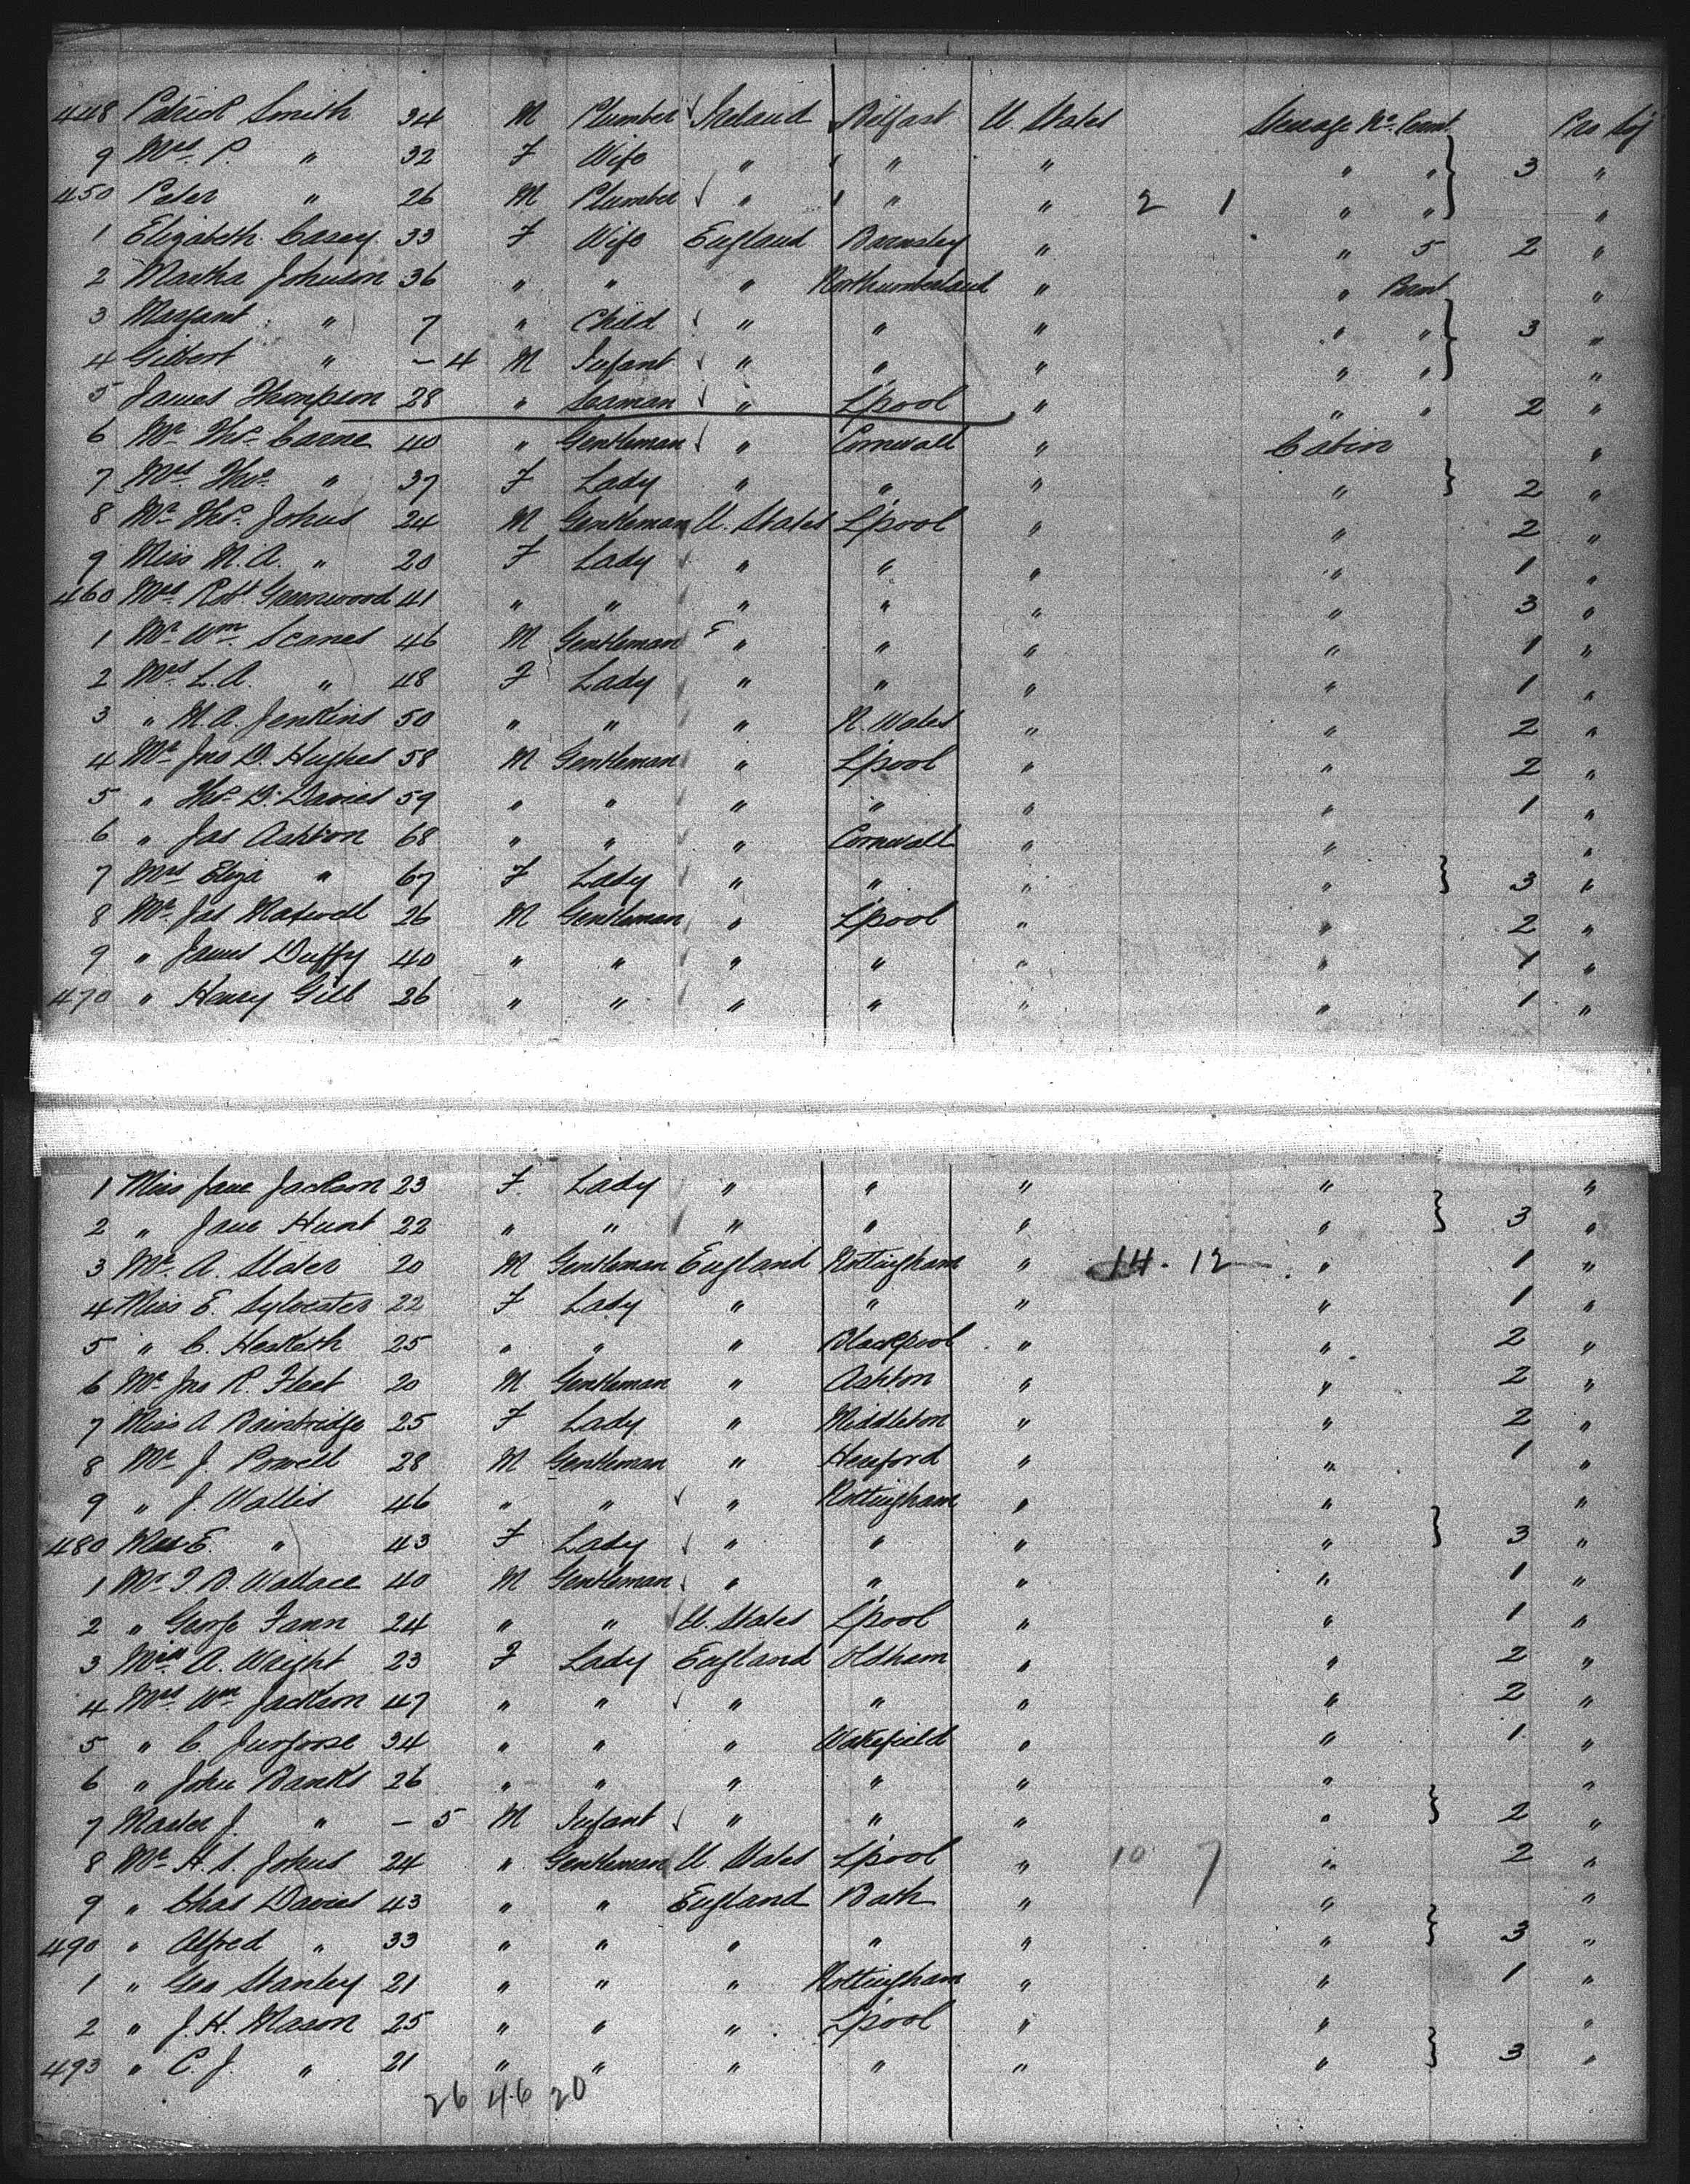 448 Patrick Smith 34 M Plumber Ireland Belfast U. States Steerage Nº Pro Soj
9 Mrs P. " 32 F Wife " " " " " 3 "
450 Peter " 26 M Plumber " " " 2 1 " " "
1 Elizabeth Casey 33 F Wife England Barnsley " " 5 2 "
2 Martha Johnson 36 " " " Northumberland " " "
3 Margaret " 7 " Child " " " " " 3 "
4 Gilbert " - 4 M Infant " " " " " "
5 James Thompson 28 " Seaman " L'pool " " " 2 "
6 Mr Thos. Carne 40 " Gentleman " Cornwall " Cabin "
7 Mrs Thos. " 37 F Lady " " " " 2 "
8 Mr Thos. Johns 24 M Gentleman U. States L'pool " " 2 "
9 Miss M. A. " 20 F Lady " " " " 1 "
460 Mrs Robt Greenwood 41 " " " " " " 3 "
1 Mr Wm Scanes 46 M Gentleman " " " " 1 "
2 Mrs L. A. " 48 F Lady " " " " 1 "
3 " M. A. Jenkins 50 " " " N. Wales " " 2 "
4 Mr Jno D. Hughes 58 M Gentleman " L'pool " " 2 "
5 " Thos. D. Davies 59 " " " " " " 1 "
6 " Jas Ashton 68 " " " Cornwall " " "
7 Mrs Eliza " 67 F Lady " " " " 3 "
8 Mr Jas Maxwell 26 M Gentleman " L'pool " " 2 "
9 " James Duffy 40 " " " " " " 1 "
470 " Henry Gill 26 " " " " " " 1 "
1 Miss Jane Jackson 23 F Lady " " " " "
2 " Jane Hunt 22 " " " " " " 3 "
3 Mr. A. Slater 20 M Gentleman England Nottingham " 14 - 12 " 1 "
4 Miss E. Sylvester 22 F Lady " " " " 1 "
5 " C. Hesketh 25 " " " Blackpool " " 2 "
6 Mr Jno R. Fleet 20 M Gentleman " Ashton " " 2 "
7 Miss A Bainbridge 25 F Lady " Middleton " " 2 "
8 Mr J. Powell 28 M Gentleman " Hereford " " 1 "
9 " J. Wallis 46 " " " Nottingham " " "
480 Mrs E. " 43 F Lady " " " " 3 "
1 Mr J. B. Wallace 40 M Gentleman " " " " 1 "
2 " George Fann 24 " " U. States L'pool " " 1 "
3 Miss A. Wright 23 F Lady England Oldham " " 2 "
4 Mrs Wm Jackson 47 " " " " " " 2 "
5 " C. 34 " " " Wakefield " " 1 "
6 " John Banks 26 " " " " " " "
7 Master J. " - 5 M Infant " " " " 2 "
8 Mr H. S. Johns 24 " Gentleman U States L'pool " 10 7 " 2 "
9 " Chas Davies 43 " " England Bath " " "
490 " Alfred " 33 " " " " " " 3 "
1 " Geo Stanley 21 " " " Nottingham " " 1 "
2 " J. H. Mason 25 " " " L'pool " " "
493 " C. J. " 21 " " " " " " 3 "
26 46 20